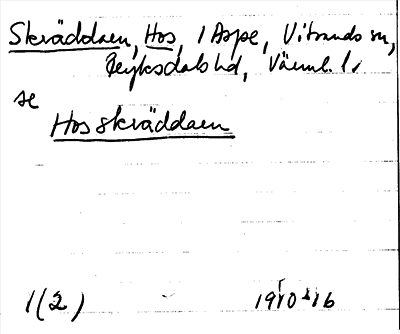 Skräddaren, Hos, i Aspe, Vitsands sn,
Fryksdals hd, Värml. l.
se
Hos skräddaren
1(2) 1910 16